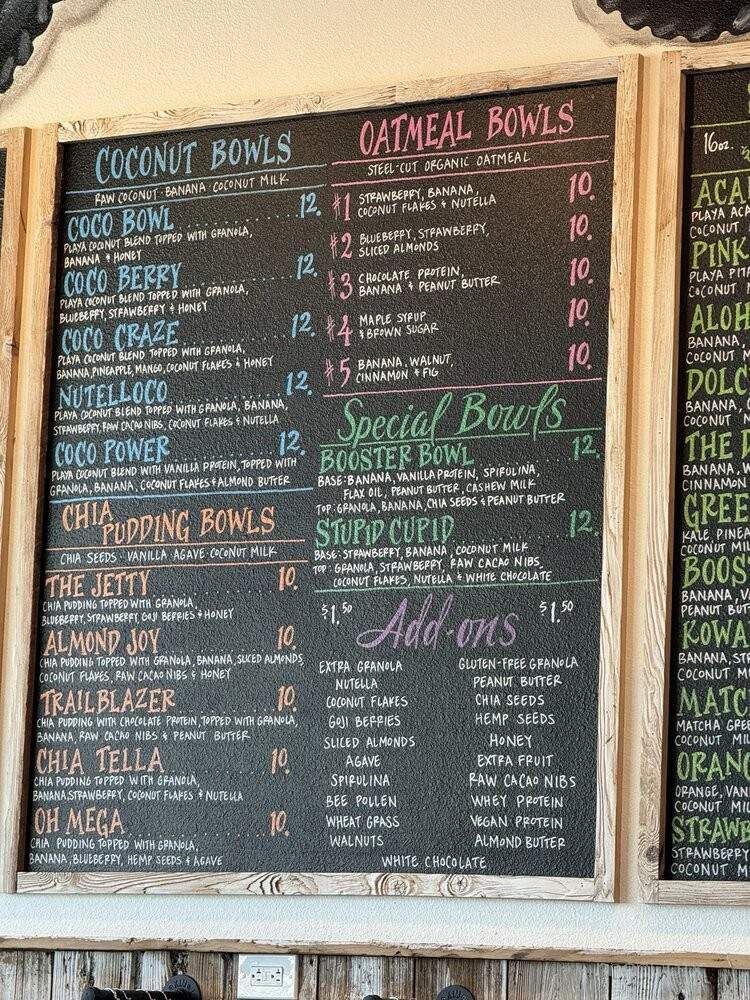 COCONUT BOWLS
RAW COCONUT · BANANA · COCONUT MILK
COCO BOWL 12.
PLAYA COCONUT BLEND TOPPED WITH GRANOLA,
BANANA & HONEY
COCO BERRY 12.
PLAYA COCONUT BLEND TOPPED WITH GRANOLA,
BLUEBERRY, STRAWBERRY & HONEY
COCO CRAZE 12.
PLAYA COCONUT BLEND TOPPED WITH GRANOLA,
BANANA, PINEAPPLE, MANGO, COCONUT FLAKES & HONEY
NUTELLOCO 12.
PLAYA COCONUT BLEND TOPPED WITH GRANOLA, BANANA,
STRAWBERRY, RAW CACAO NIBS, COCONUT FLAKES & NUTELLA
COCO POWER 12.
PLAYA COCONUT BLEND WITH VANILLA PROTEIN, TOPPED WITH
GRANOLA, BANANA, COCONUT FLAKES & ALMOND BUTTER
CHIA
PUDDING BOWLS
CHIA SEEDS · VANILLA · AGAVE · COCONUT MILK
THE JETTY 10.
CHIA PUDDING TOPPED WITH GRANOLA,
BLUEBERRY, STRAWBERRY, GOJI BERRIES & HONEY
ALMOND JOY 10.
CHIA PUDDING TOPPED WITH GRANOLA, BANANA, SLICED ALMONDS,
COCONUT FLAKES, RAW CACAO NIBS & HONEY
TRAILBLAZER 10.
CHIA PUDDING WITH CHOCOLATE PROTEIN, TOPPED WITH GRANOLA,
BANANA, RAW CACAO NIBS & PEANUT BUTTER
CHIA TELLA 10.
CHIA PUDDING TOPPED WITH GRANOLA,
BANANA, STRAWBERRY, COCONUT FLAKES & NUTELLA
OH MEGA 10.
CHIA PUDDING TOPPED WITH GRANOLA,
BANANA, BLUEBERRY, HEMP SEEDS & AGAVE
OATMEAL BOWLS
STEEL-CUT ORGANIC OATMEAL
#1 STRAWBERRY, BANANA, 10.
COCONUT FLAKES & NUTELLA
#2 BLUEBERRY, STRAWBERRY, 10.
SLICED ALMONDS
#3 CHOCOLATE PROTEIN, 10.
BANANA & PEANUT BUTTER
#4 MAPLE SYRUP 10.
& BROWN SUGAR
#5 BANANA, WALNUT, 10.
CINNAMON & FIG
Special Bowls
BOOSTER BOWL 12.
BASE: BANANA, VANILLA PROTEIN, SPIRULINA,
FLAX OIL, PEANUT BUTTER, CASHEW MILK
TOP: GRANOLA, BANANA, CHIA SEEDS & PEANUT BUTTER
STUPID CUPID 12.
BASE: STRAWBERRY, BANANA, COCONUT MILK
TOP: GRANOLA, STRAWBERRY, RAW CACAO NIBS,
COCONUT FLAKES, NUTELLA & WHITE CHOCOLATE
$1.50 Add-ons $1.50
EXTRA GRANOLA
NUTELLA
COCONUT FLAKES
GOJI BERRIES
SLICED ALMONDS
AGAVE
SPIRULINA
BEE POLLEN
WHEAT GRASS
WALNUTS
GLUTEN-FREE GRANOLA
PEANUT BUTTER
CHIA SEEDS
HEMP SEEDS
HONEY
EXTRA FRUIT
RAW CACAO NIBS
WHEY PROTEIN
VEGAN PROTEIN
ALMOND BUTTER
WHITE CHOCOLATE
16oz.
PLAYA
COCONUT
PINK
PLAYA
COCONUT
BANANA,
COCONUT
BANANA,
COCONUT
THE
BANANA,
CINNAMON
KALE,
COCONUT
BANANA,
BANANA,
COCONUT
MATCHA
COCONUT
ORANGE,
COCONUT
STRAWBERRY
COCONUT